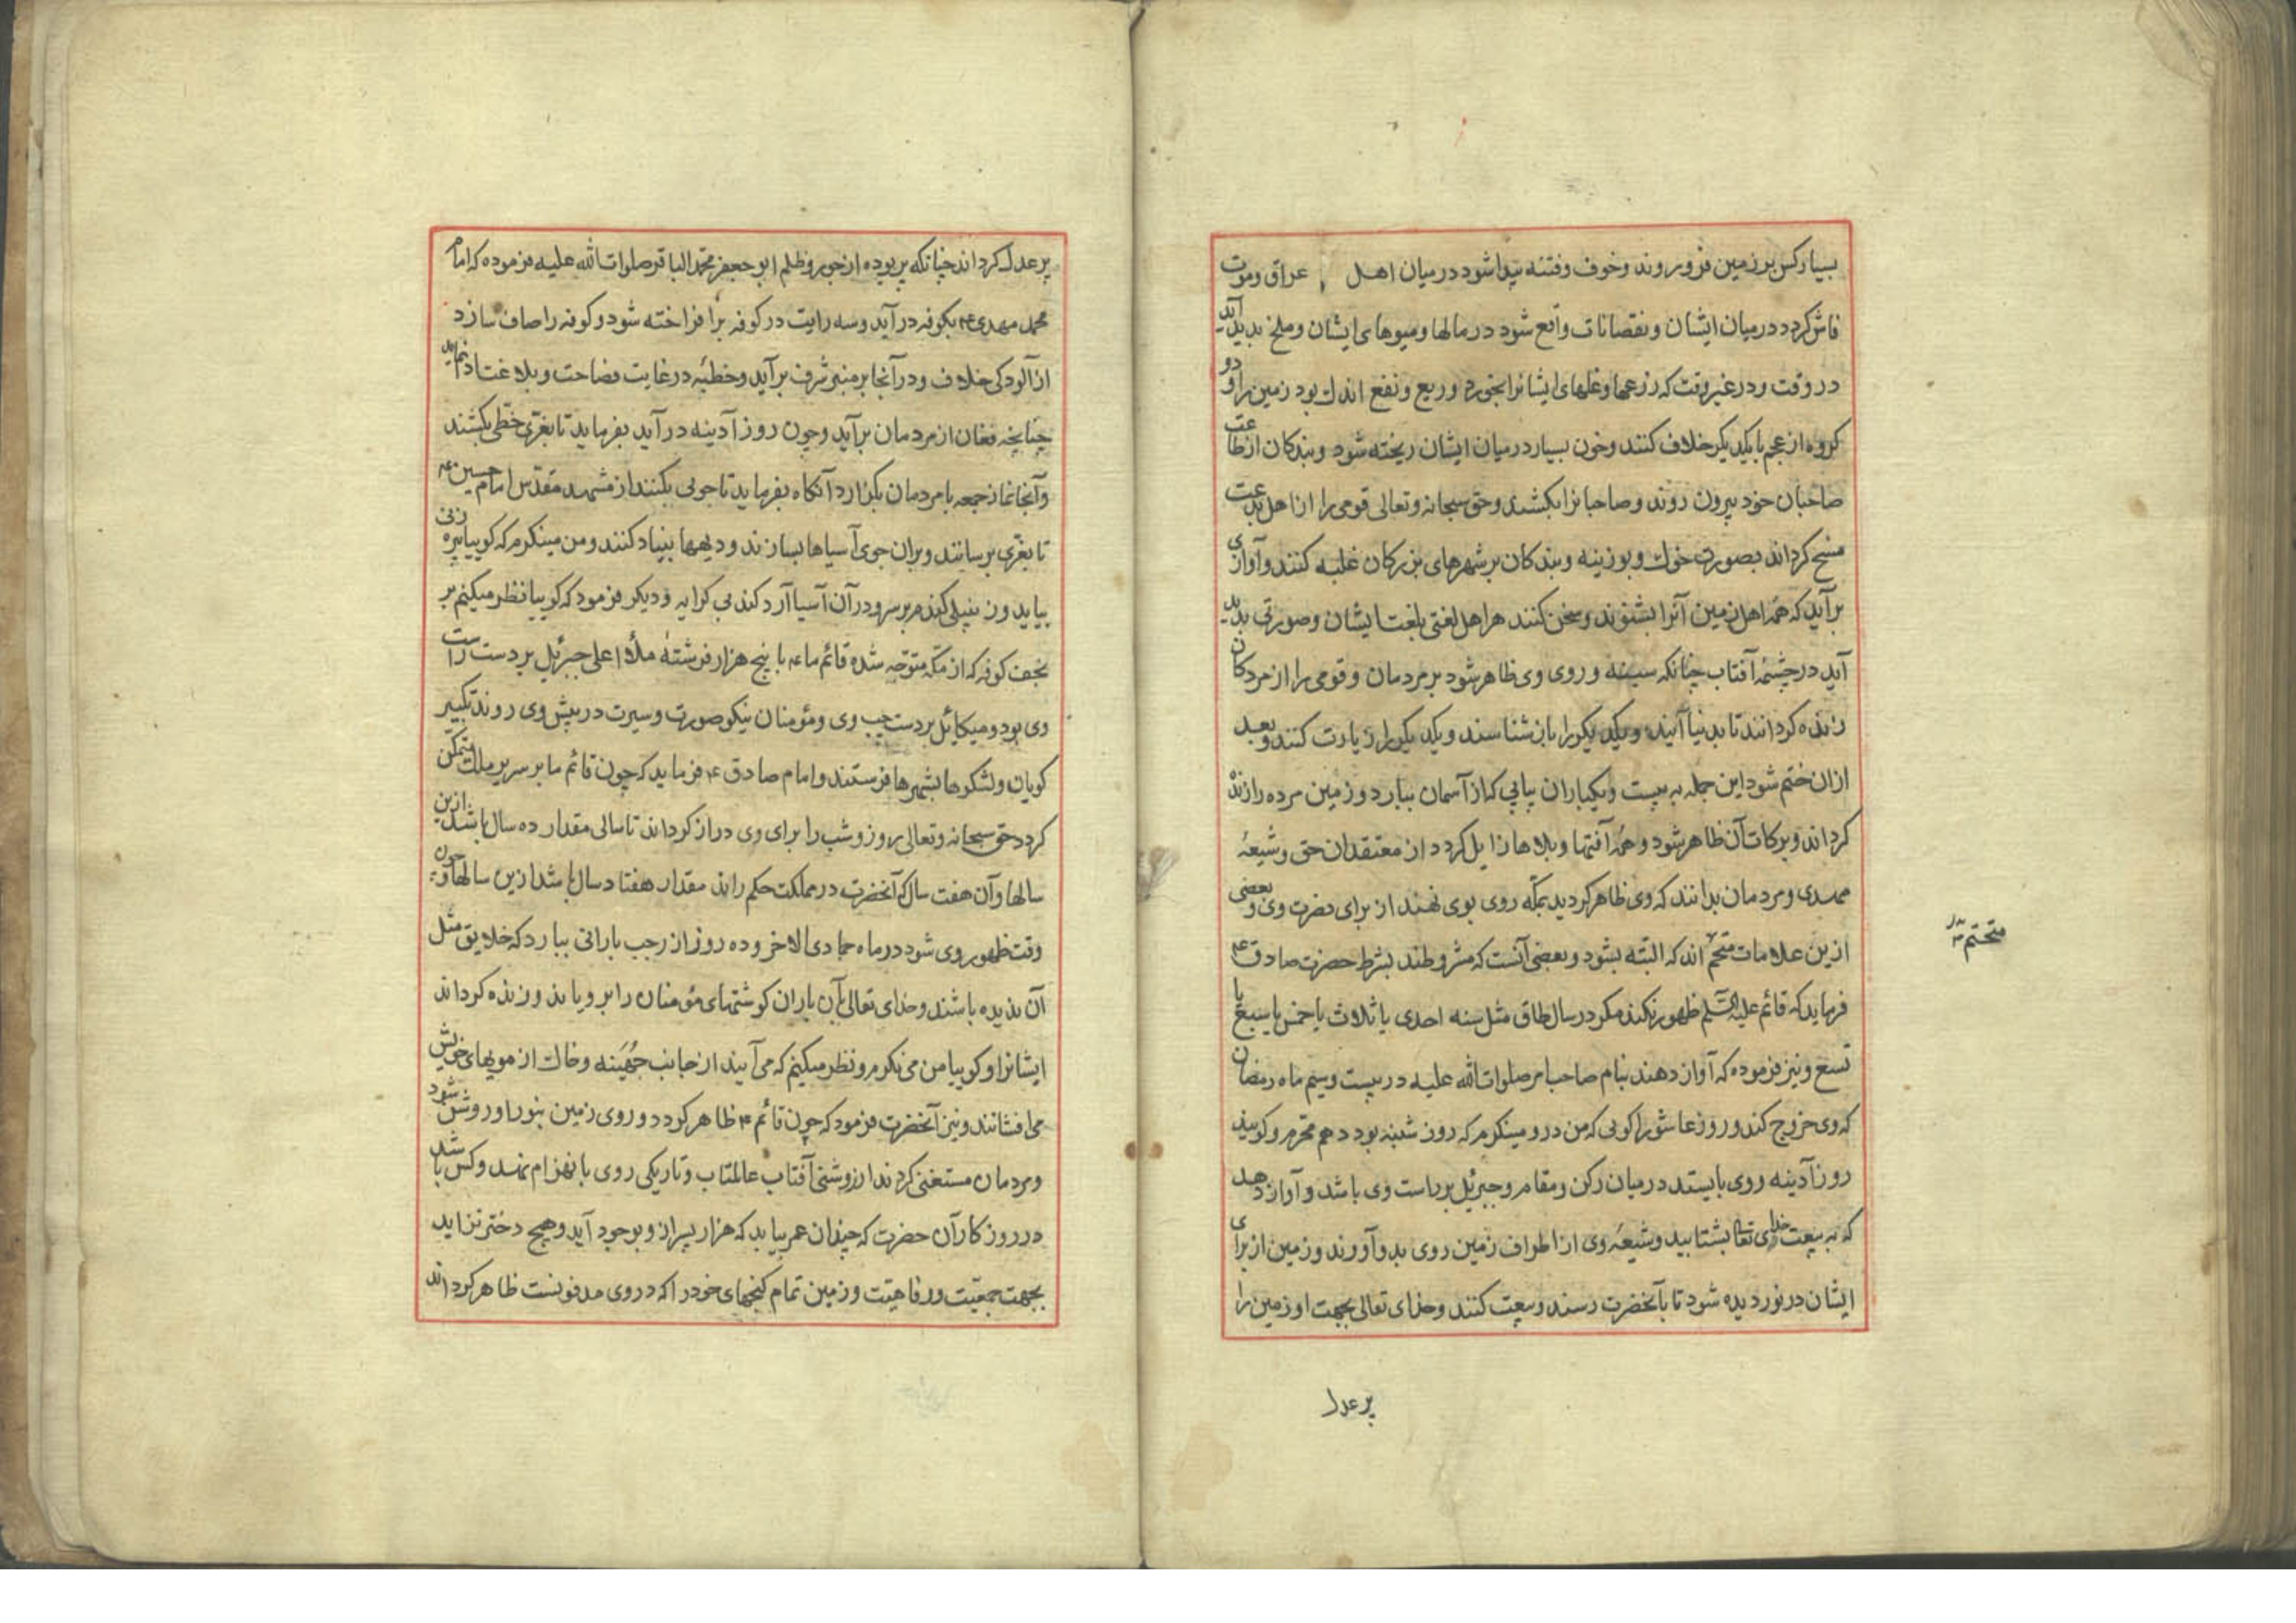 بسیار کس بر زمین فرو روند و خوف و فتنه پیدا شود در میان اهل عراق و موت
فاش کردد در میان ایشان و نقصانات واقع شود در مالها و میوهای ایشان و ملخ بدید آید
در وقت و در غیر وقت که زرعها و غلهای ایشانرا بخورد و ریع و نفع اندک بود زمین را و دو
کروه از عجم با یکدیکر خلاف کنند و خون بسیار در میان ایشان ریخته شود و بندکان از طاعت
صاحبان خود بیرون روند و صاحبانرا بکشند و حق سبحانه و تعالی قومی را از اهل بدعت
مسخ کرداند بصورت خوک و بوزینه و بندکان بر شهرهای بزرکان غلبه کنند و آوازی
بر آید که همه اهل زمین آنرا بشنوند و سخن کنند هر اهل لغتی بلغت ایشان و صورتی بدید
آید در چشمهٔ آفتاب چنانکه سینه و روی وی ظاهر شود بر مردمان و قومی را از مردکان
زنده کردانند تا بدنیا آیند و یکدیکر را باز شناسند و یکدیکر را زیارت کنند و بعد
ازان ختم شود این جمله به بیست و یکباران پیاپی که از آسمان ببارد و زمین مرده را زنده
کرداند و برکات آن ظاهر شود و همه آفتها و بلاها زایل کردد از معتقدان حق و شیعهٔ
مهدی و مردمان بدانند که وی ظاهر کردید بمکه روی بوی نهند از برای نصرت وی و بعضی
ازین علامات متحم اند که البته بشود و بعضی آنست که مشروطند بشرط حضرت صادق ع
فرماید که قائم علیه السلم ظهور نکند مکر در سال طاق مثل سنه احدی یا ثلاث یا خمس یا سبع یا
تسع و نیز فرموده که آواز دهند بنام صاحب امر صلوات الله علیه در بیست و سیم ماه رمضان
که وی خروج کند و روز عاشورا کویی که من در و مینکرم که روز شنبه بود دهم محرم و کویند
روز آدینه و وی بایستد در میان رکن و مقام و جبرئیل بر راست وی باشد و آواز دهد
که به بیعت خدای تعا بشتابید و شیعهٔ وی از اطراف زمین روی بدو آورند و زمین از برای
ایشان در نوردیده شود تا بآنحضرت رسند و بیعت کنند و خدای تعالی بجهت او زمین را
متحتم
پر عدل
پر عدل کرداند چنانکه پر بوده از جور و ظلم ابو جعفر محمد الباقر صلوات الله علیه فرموده که امام
محمد مهدی ع بکوفه در آید و سه رایت در کوفه بر افراخته شود و کوفه را صاف سازد
از آلودکی خلاف و در آنجا بر منبر شرف بر آید و خطبه در غایت فصاحت و بلاغت ادا نماید
چنانچه فغان از مردمان برآید و چون روز آدینه در آید بفرماید تا بغری خطی بکشند
و آنجا نماز جمعه با مردمان بکزارد آنکاه بفرماید تا جویی بکنند از مشهد مقدس امام حسین ع
تا بغری برسانند و بران جوی آسیاها بسازند و دیهها بنیاد کنند و من مینکرم که کوییا پیره زنی
بیاید و زنبیلی کندم بر سر و در آن آسیا آرد کند بی کرایه و دیکر فرمود که کوییا نظر میکنم بر
نجف کوفه که از مکه متوجه شده قائم ما ع با پنج هزار فرشتهٔ ملأ اعلی جبرئیل بر دست راست
وی بود و میکائیل بر دست چپ وی و مؤمنان نیکو صورت و سیرت در پیش وی روند تکبیر
کویان و لشکرها بشهرها فرستند و امام صادق ع فرماید که چون قائم ما بر سریر ملک متمکن
کردد حق سبحانه و تعالی روز و شب را برای وی دراز کرداند تا سالی مقدار ده سال باشد ازین
سالها و آن هفت سال که آنحضرت در مملکت حکم راند مقدار هفتاد سال باشد ازین سالها و چون
وقت ظهور وی شود در ماه جمادی الاخر و ده روز از رجب بارانی ببارد که خلایق مثل
آن ندیده باشند و خدای تعالی بآن باران کوشتهای مؤمنان را برویاند و زنده کرداند
ایشانرا و کوییا من می نکرم و نظر میکنم که می آیند از جانب جهینه و خاک از مویهای خویش
می افشانند و نیز آنحضرت فرمود که چون قائم ع ظاهر کردد و روی زمین بنور او روشن شود
و مردمان مستغنی کردند از روشنی آفتاب عالمتاب و تاریکی روی بانهزام نهد و کس باشد
در روزکار آن حضرت که چندان عمر بیابد که هزار پسر ازو بوجود آید و هیچ دختر نزاید
بجهت جمعیت و رفاهیت و زمین تمام کنجهای خود را که در وی مدفونست ظاهر کرداند